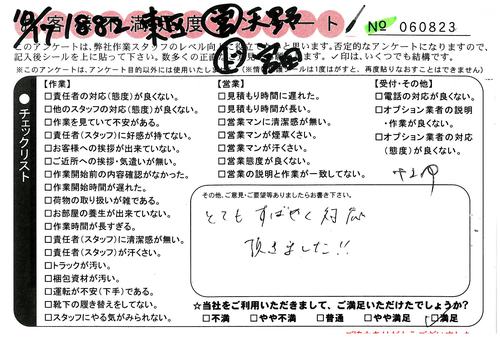 お客様満足度アンケート
18812 東区 天野
No 060823
このアンケートは、弊社作業スタッフのレベル向上に役立て
と思います。否定的なアンケートになりますので、
記入後シールを上に貼って下さい。数多くの正直な
✓印は、いくつでも結構です。
※このアンケートは、アンケート目的以外には使用いたしません
シールは1度はがすと、再度貼りなおすことはできません)
●チェックリスト
【作業】
□責任者の対応(態度)が良くない。
□他のスタッフの対応(態度)が良くない。
□作業を見ていて不安がある。
□責任者(スタッフ)に好感が持てない。
□お客様への挨拶が出来ていない。
□ご近所への挨拶・気遣いが無い。
□作業開始前の内容確認がなかった。
□作業開始時間が遅れた。
□荷物の取り扱いが雑である。
□お部屋の養生が出来ていない。
□作業時間が長すぎる。
□責任者(スタッフ)に清潔感が無い。
□責任者(スタッフ)が汗くさい。
□トラックが汚い。
□梱包資材が汚い。
□運転が不安(下手)である。
□靴下の履き替えをしてない。
□スタッフにやる気がみられない。
【営業】
□見積もり時間に遅れた。
□見積もり時間が長い。
□営業マンに清潔感が無い。
□営業マンが煙草くさい。
□営業マンが汗くさい。
□営業態度が良くない。
□営業の説明と作業が一致してない。
【受付・その他】
□電話の対応が良くない。
□オプション業者の説明
・作業が良くない。
□オプション業者の対応
(態度)が良くない。
その他、ご意見・ご要望等ありましたらお書き下さい。
とても すばやく対応
頂きました!!
☆当社をご利用いただきまして、ご満足いただけたでしょうか?
□不満 □やや不満 □普通 □やや満足 □満足